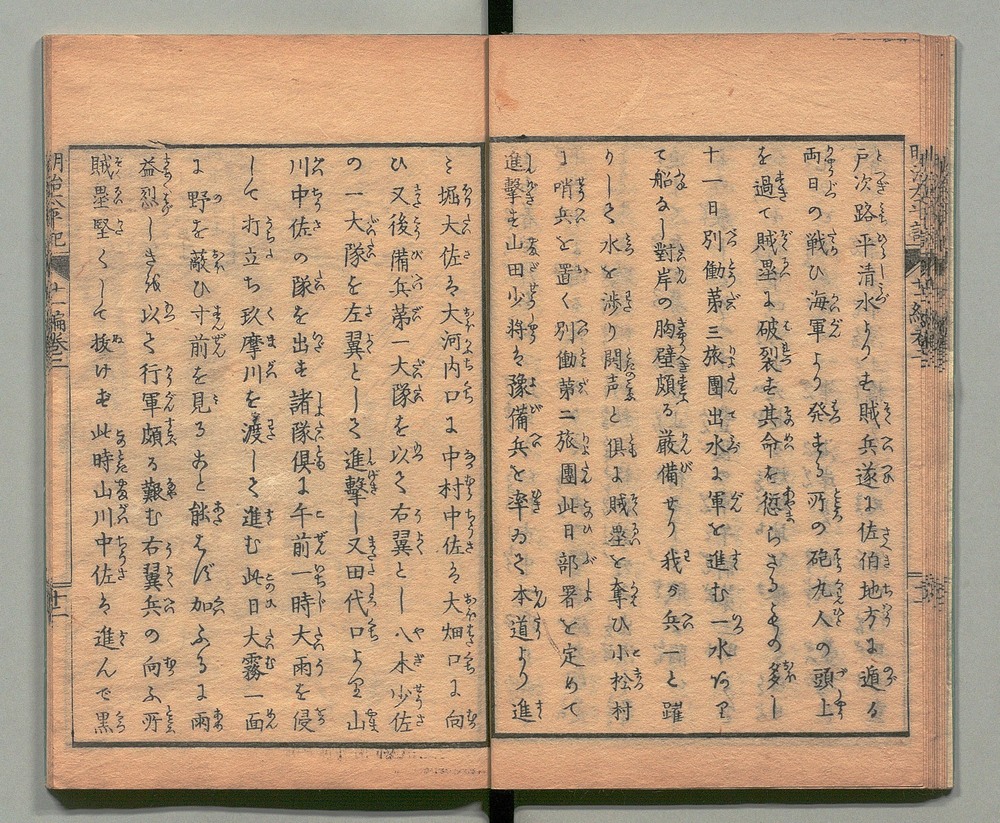 戸次路平清水よりも賊兵遂に佐伯地方に遁る
両日の戦ひ海軍より発する所の砲丸人の頭上
を過て賊塁に破裂も其命を愆らざるもの多し
十一日別働第三旅團出水に軍を進む一水あり
て船なし對岸の胸壁頗る厳備せり我が兵一と躍
りして水を渉り鬨声と倶に賊塁を奪ひ小松村
に哨兵を置く別働第二旅團此日部署を定めて
進撃も山田少将は豫備兵を率ゐて本道より進
み堀大佐は大河内口に中村中佐は大畑口に向
ひ又後備兵第一大隊を以て右翼とし八木少佐
の一大隊を左翼として進撃し又田代口より山
川中佐の隊を出も諸隊倶に午前一時大雨を侵
して打立ち玖摩川を渡して進む此日大霧一面
に野を蔽ひ寸前を見ること能はず加ふるに雨
益烈しきを以て行軍頗る艱む右翼兵の向ふ所
賊塁堅くして抜けも此時山川中佐は進んで黒
明治太平記
十一編巻二
十二